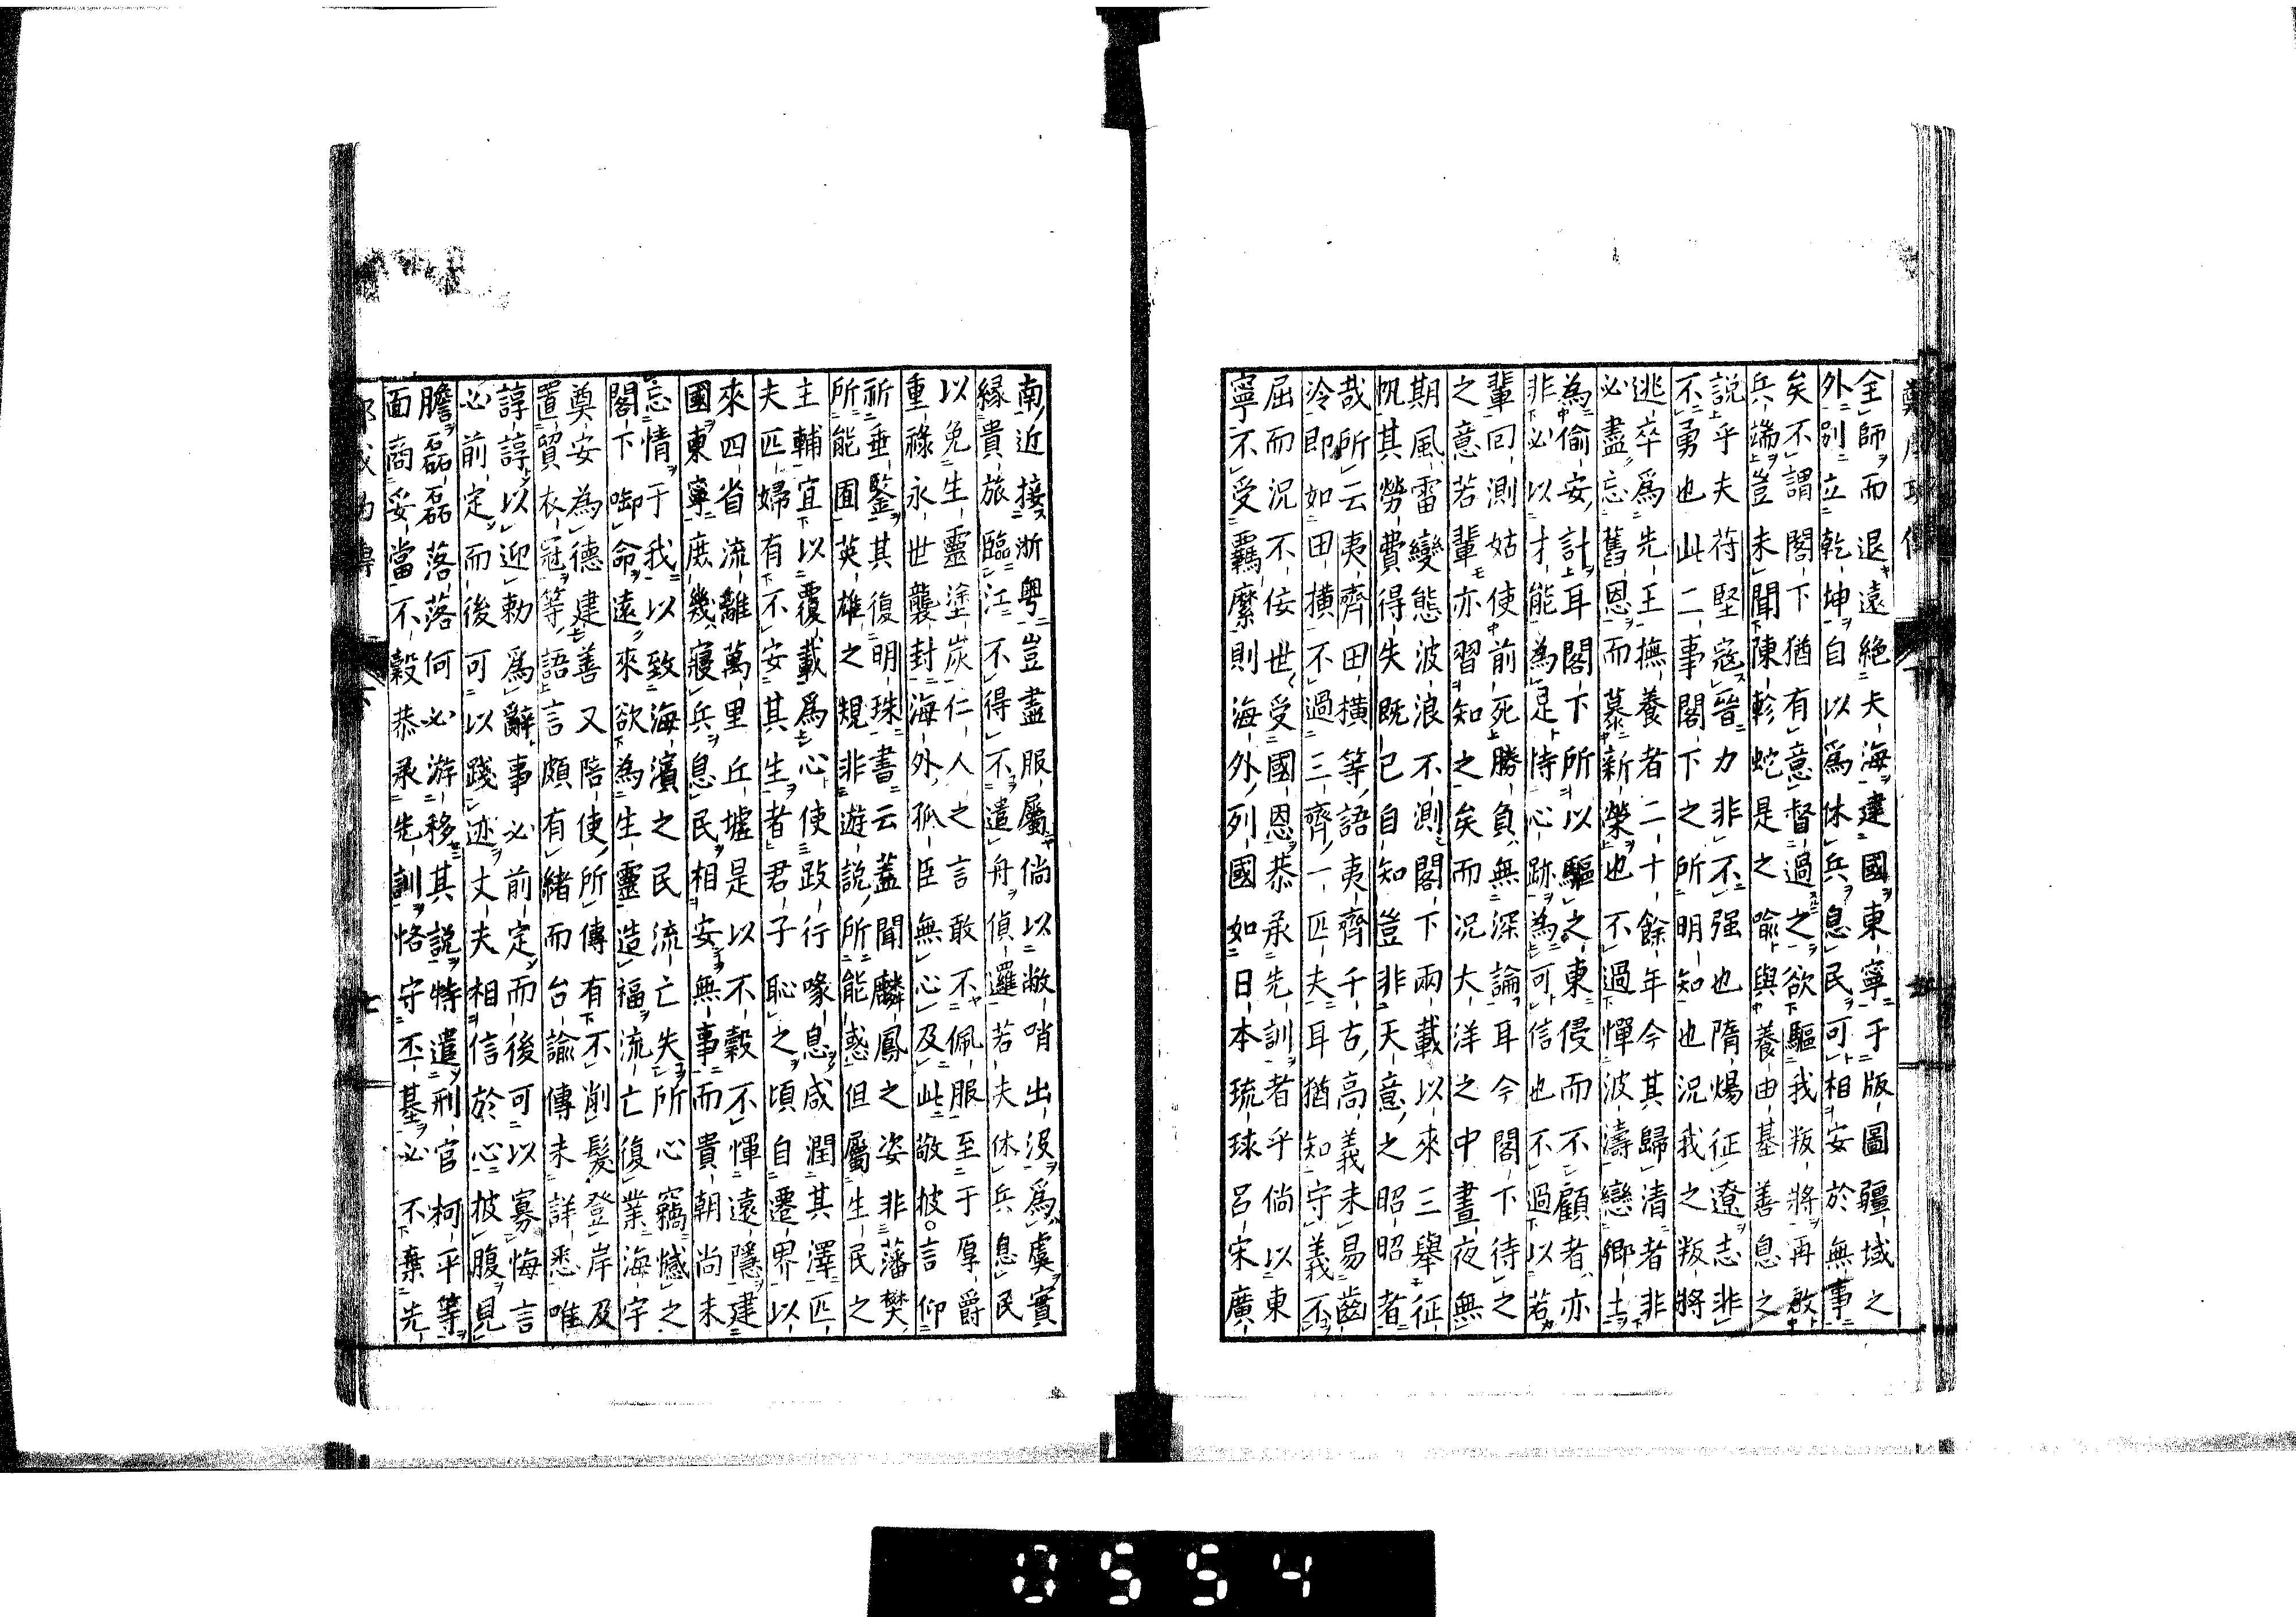 全師而退遠絶大海建國東寧于版圖疆域之
外別立乾坤自以爲休兵息民可相安於無事
矣不謂閣下猶有意督過之欲驅我叛將再啟
兵端豈未聞陳軫蛇是之喻與養由基善息之
説乎夫苻堅寇晉力非不强也隋煬征遼志非
不勇也此二事閣下之所明知也況我之叛將
逃卒爲先王撫養者二十餘年今其歸清者非
必盡忘舊恩而慕新榮也不過憚波濤戀鄉土
為偷安計耳閣下所以驅之東侵而不顧者亦
非必以才能為足恃心跡為可信也不過以若
輩叵測姑使前死勝負無深論耳今閣下待之
之意若輩亦習知之矣而況大洋之中晝夜無
期風雷變態波浪不測閣下兩載以來三舉征
帆其勞費得失既已自知豈非天意之昭昭者
哉所云夷齊田橫等語夷齊千古高義未易齒
冷即如田橫不過三齊一匹夫耳猶知守義不
屈而況不佞世受國恩恭承先訓者乎倘以東
寧不受羈縻則海外列國如日本琉球呂宋廣
南近接浙粤豈盡服屬倘以敝哨出没爲虞實
縁貴旅臨江不得不遣舟偵邏若夫休兵息民
以免生靈塗炭仁人之言敢不佩服至于厚爵
重祿永世襲封海外孤臣無心及此敬披言仰
祈垂鑒其復明珠書云蓋聞麟鳳之姿非藩樊
所能囿英雄之規非遊説所能惑但屬生民之
主輔宜以覆載爲心使跂行喙息咸潤其澤匹
夫匹婦有不安其生者君子恥之頃自遷界以
來四省流離萬里丘墟是以不穀不憚遠隱建
國東寧庶幾寢兵息民相安無事而貴朝尚未
忘情于我以致海濱之民流亡失所心竊憾之
閣下啣命遠來欲為生靈造福流亡復業海宇
奠安為德建善又陪使所傳有不削髮登岸及
置貿衣冠等語言頗有緒而台諭傳未詳悉唯
諄諄以迎勅爲辭事必前定而後可以寡悔言
必前定而後可以踐迹丈夫相信於心披腹見
膽磊磊落落何必游移其説特遣刑官柯平等
面商妥當不穀恭承先訓恪守丕基必不棄先
0554